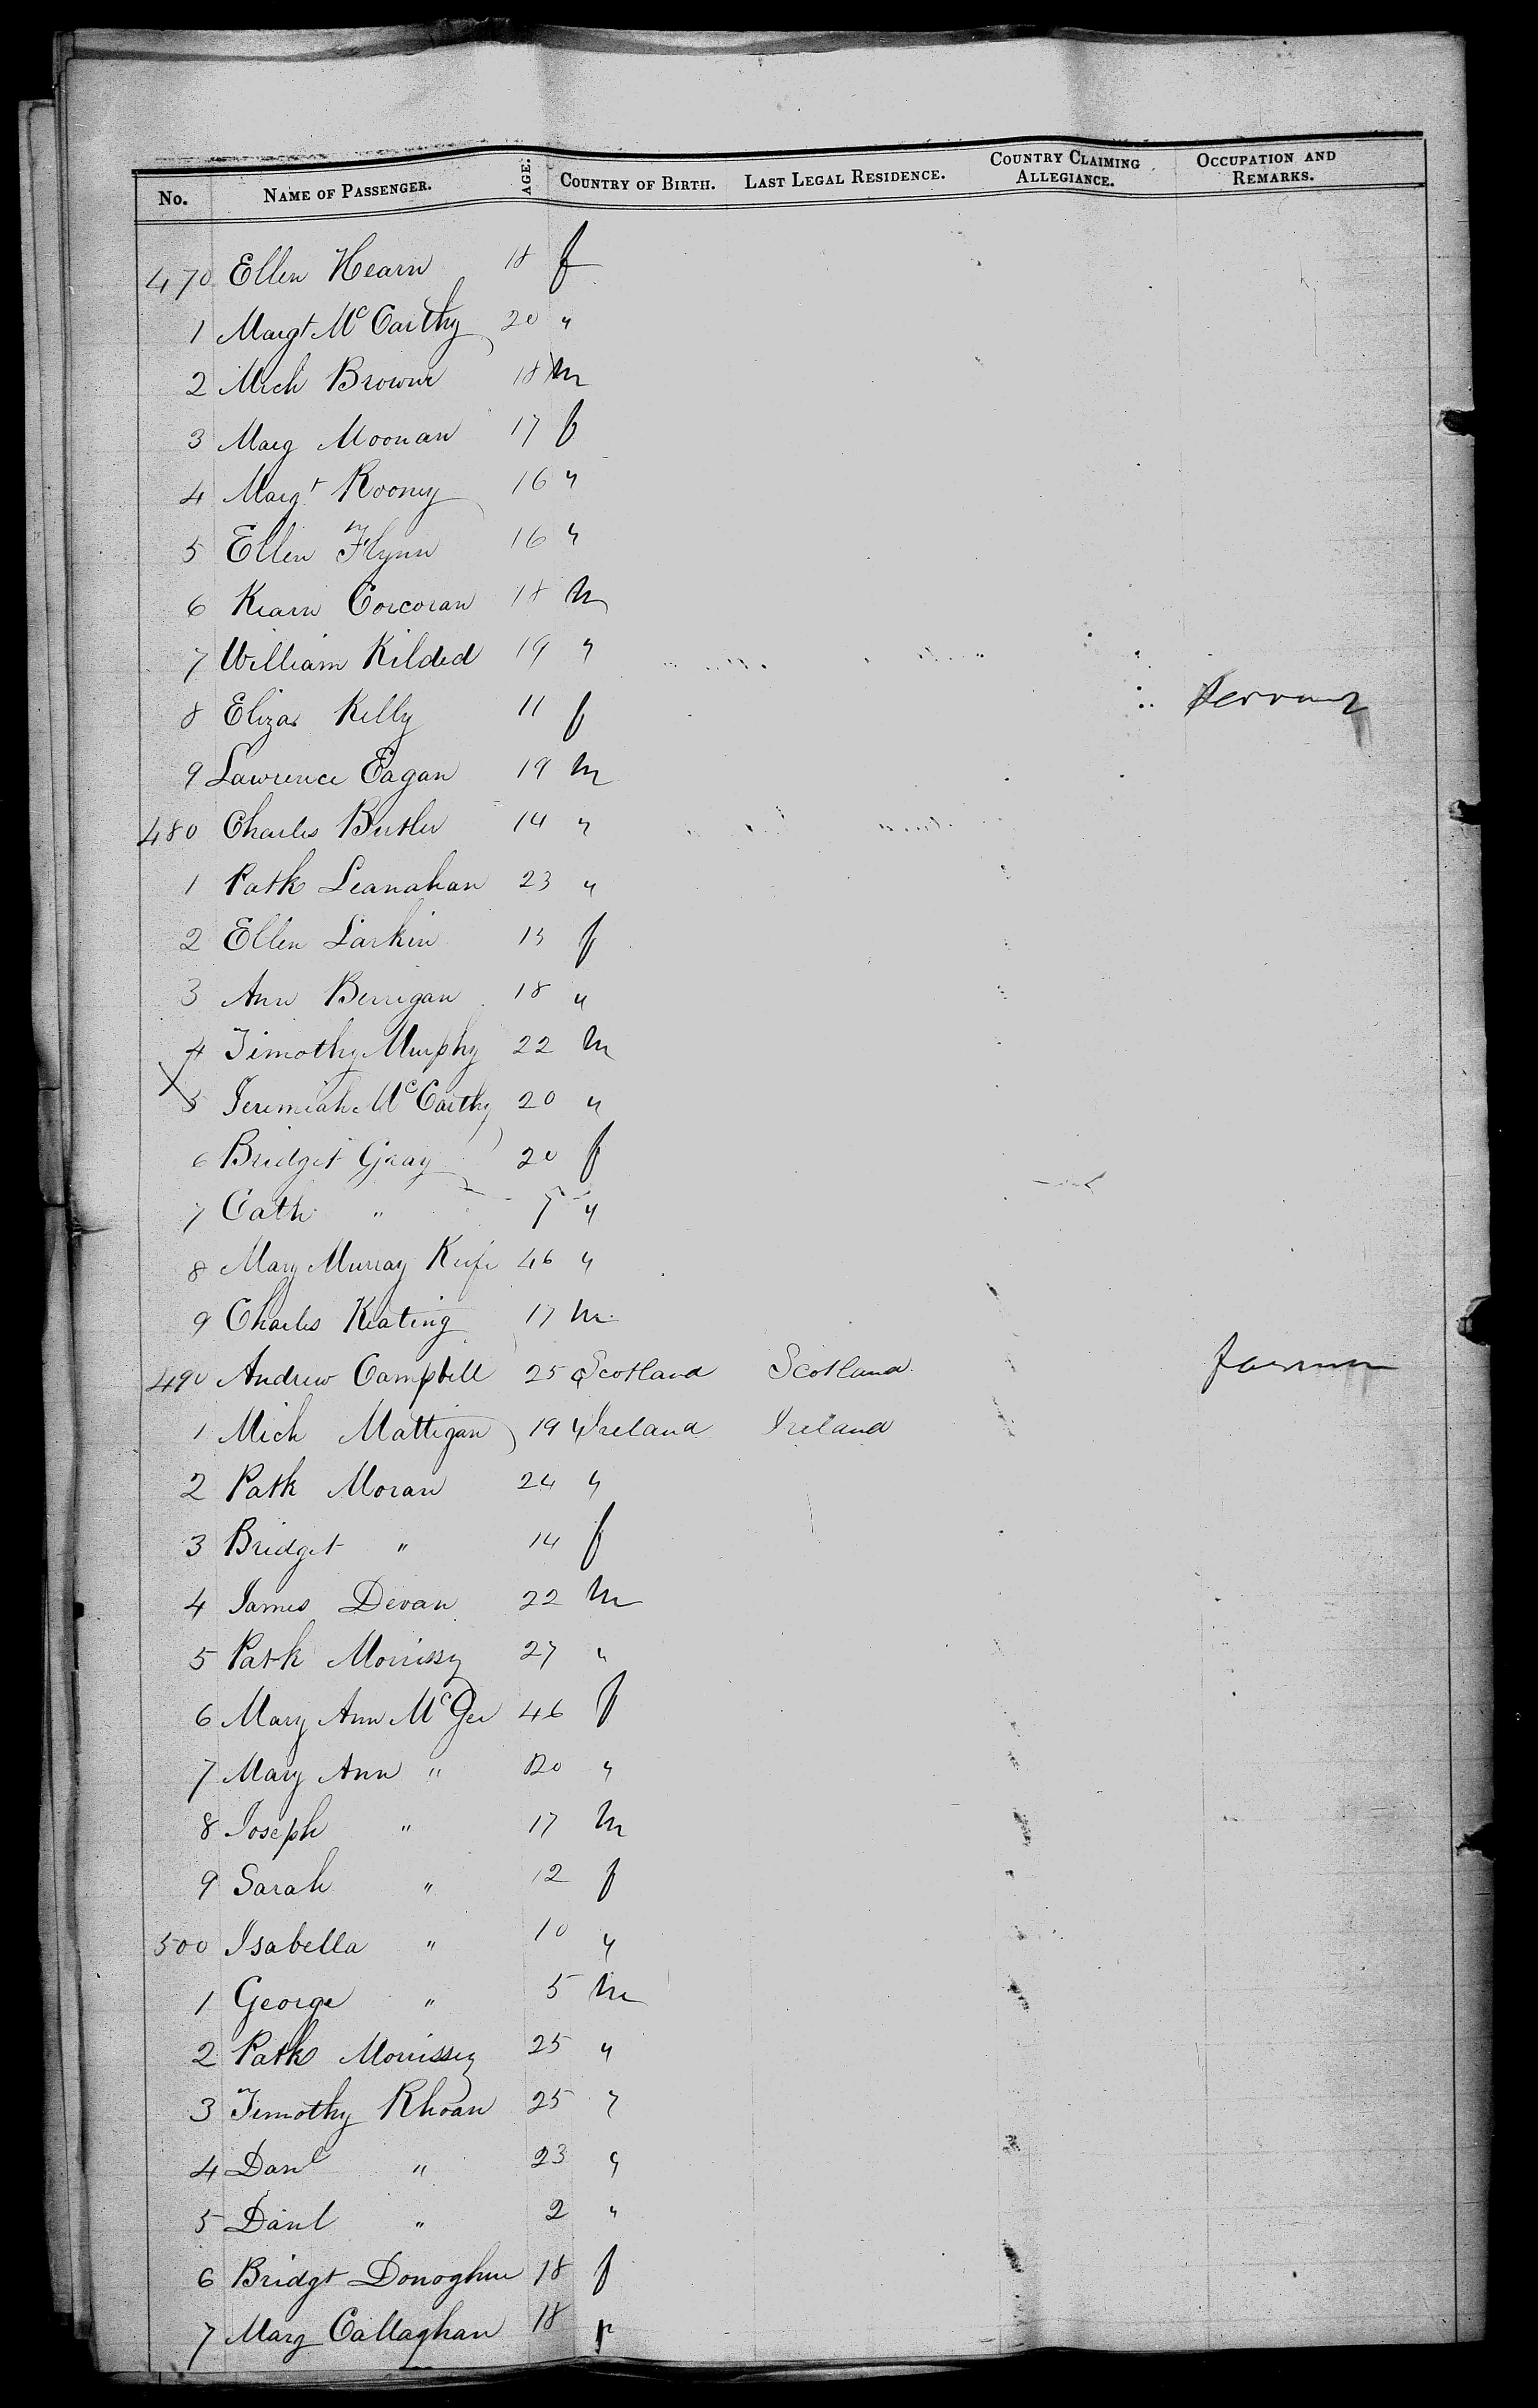 No. NAME OF PASSENGER. AGE. COUNTRY OF BIRTH. LAST LEGAL RESIDENCE. COUNTRY CLAIMING ALLEGIANCE. OCCUPATION AND REMARKS.
470 Ellen Hearn 18 f
1 Margt McCarthy 20 "
2 Mich Browne 18 m
3 Marg Moonan 17 f
4 Margt Rooney 16 "
5 Ellen Flynn 16 "
6 Kearn Corcoran 18 m
7 William Kilded 19 "
8 Eliza Kelly 11 f
9 Lawrence Eagan 19 m
480 Charles Butler 14 "
1 Patk Leanahan 23 "
2 Ellen Larkin 13 f
3 Ann Berrigan 18 "
4 Timothy Murphy 22 m
5 Jeremiah McCarthy 20 "
6 Bridget Gray 20 f
7 Cath " 7 "
8 Mary Murray Keefe 46 "
9 Charles Keating 17 m
490 Andrew Campbell 25 " Scotland Scotland
1 Mich Mattigan 19 " Ireland Ireland
2 Patk Moran 24 "
3 Bridget " 14 f
4 James Devan 22 m
5 Patk Morrissy 27 "
6 Mary Ann McGee 46 f
7 Mary Ann " 20 "
8 Joseph " 17 m
9 Sarah " 12 f
500 Isabella " 10 "
1 George " 5 m
2 Patk Morrissey 25 "
3 Timothy Rhoan 25 "
4 Danl " 23 "
5 Danl " 2 "
6 Bridgt Donoghue 18 f
7 Marg Callaghan 18 f